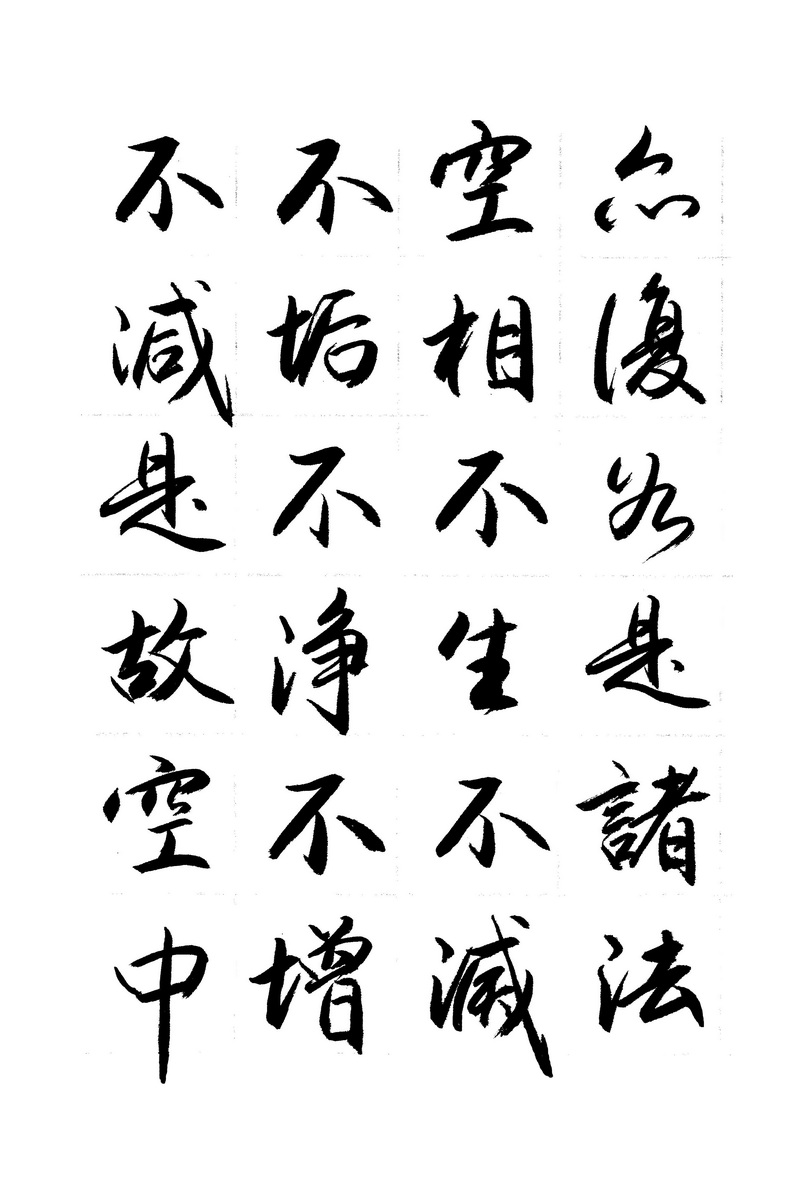 亦復如是諸法
空相不生不滅
不垢不淨不增
不減是故空中